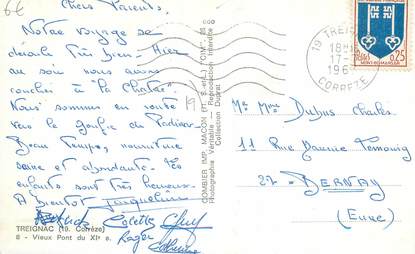 6€
Chers Parents.
Notre voyage se
déroule Très Bien - Hier
au soir nous avons
couchés à "La Châtre".
Nous sommes en route
vers le gouffre de Padirac
Beau Temps, nourriture
saine et abondante. Les
enfants sont Très heureux.
A Bientôt Jacqueline
Colette Guy
Roger
TREIGNAC (19. Corrèze)
8 - Vieux Pont du XIe s.
COMBIER IMP. MACON (S.-et-L.) "CIM"
Photographie Véritable - Reproduction interdite
Collection Duprat
19
19 TREIGNAC
18H
17-
196
CORRÈZE
REPUBLIQUE FRANCAISE
POSTES
0,25
MONT-DE-MARSAN
Mr Mme Dubus Charles
11 Rue
27- BERNAY
(Eure)